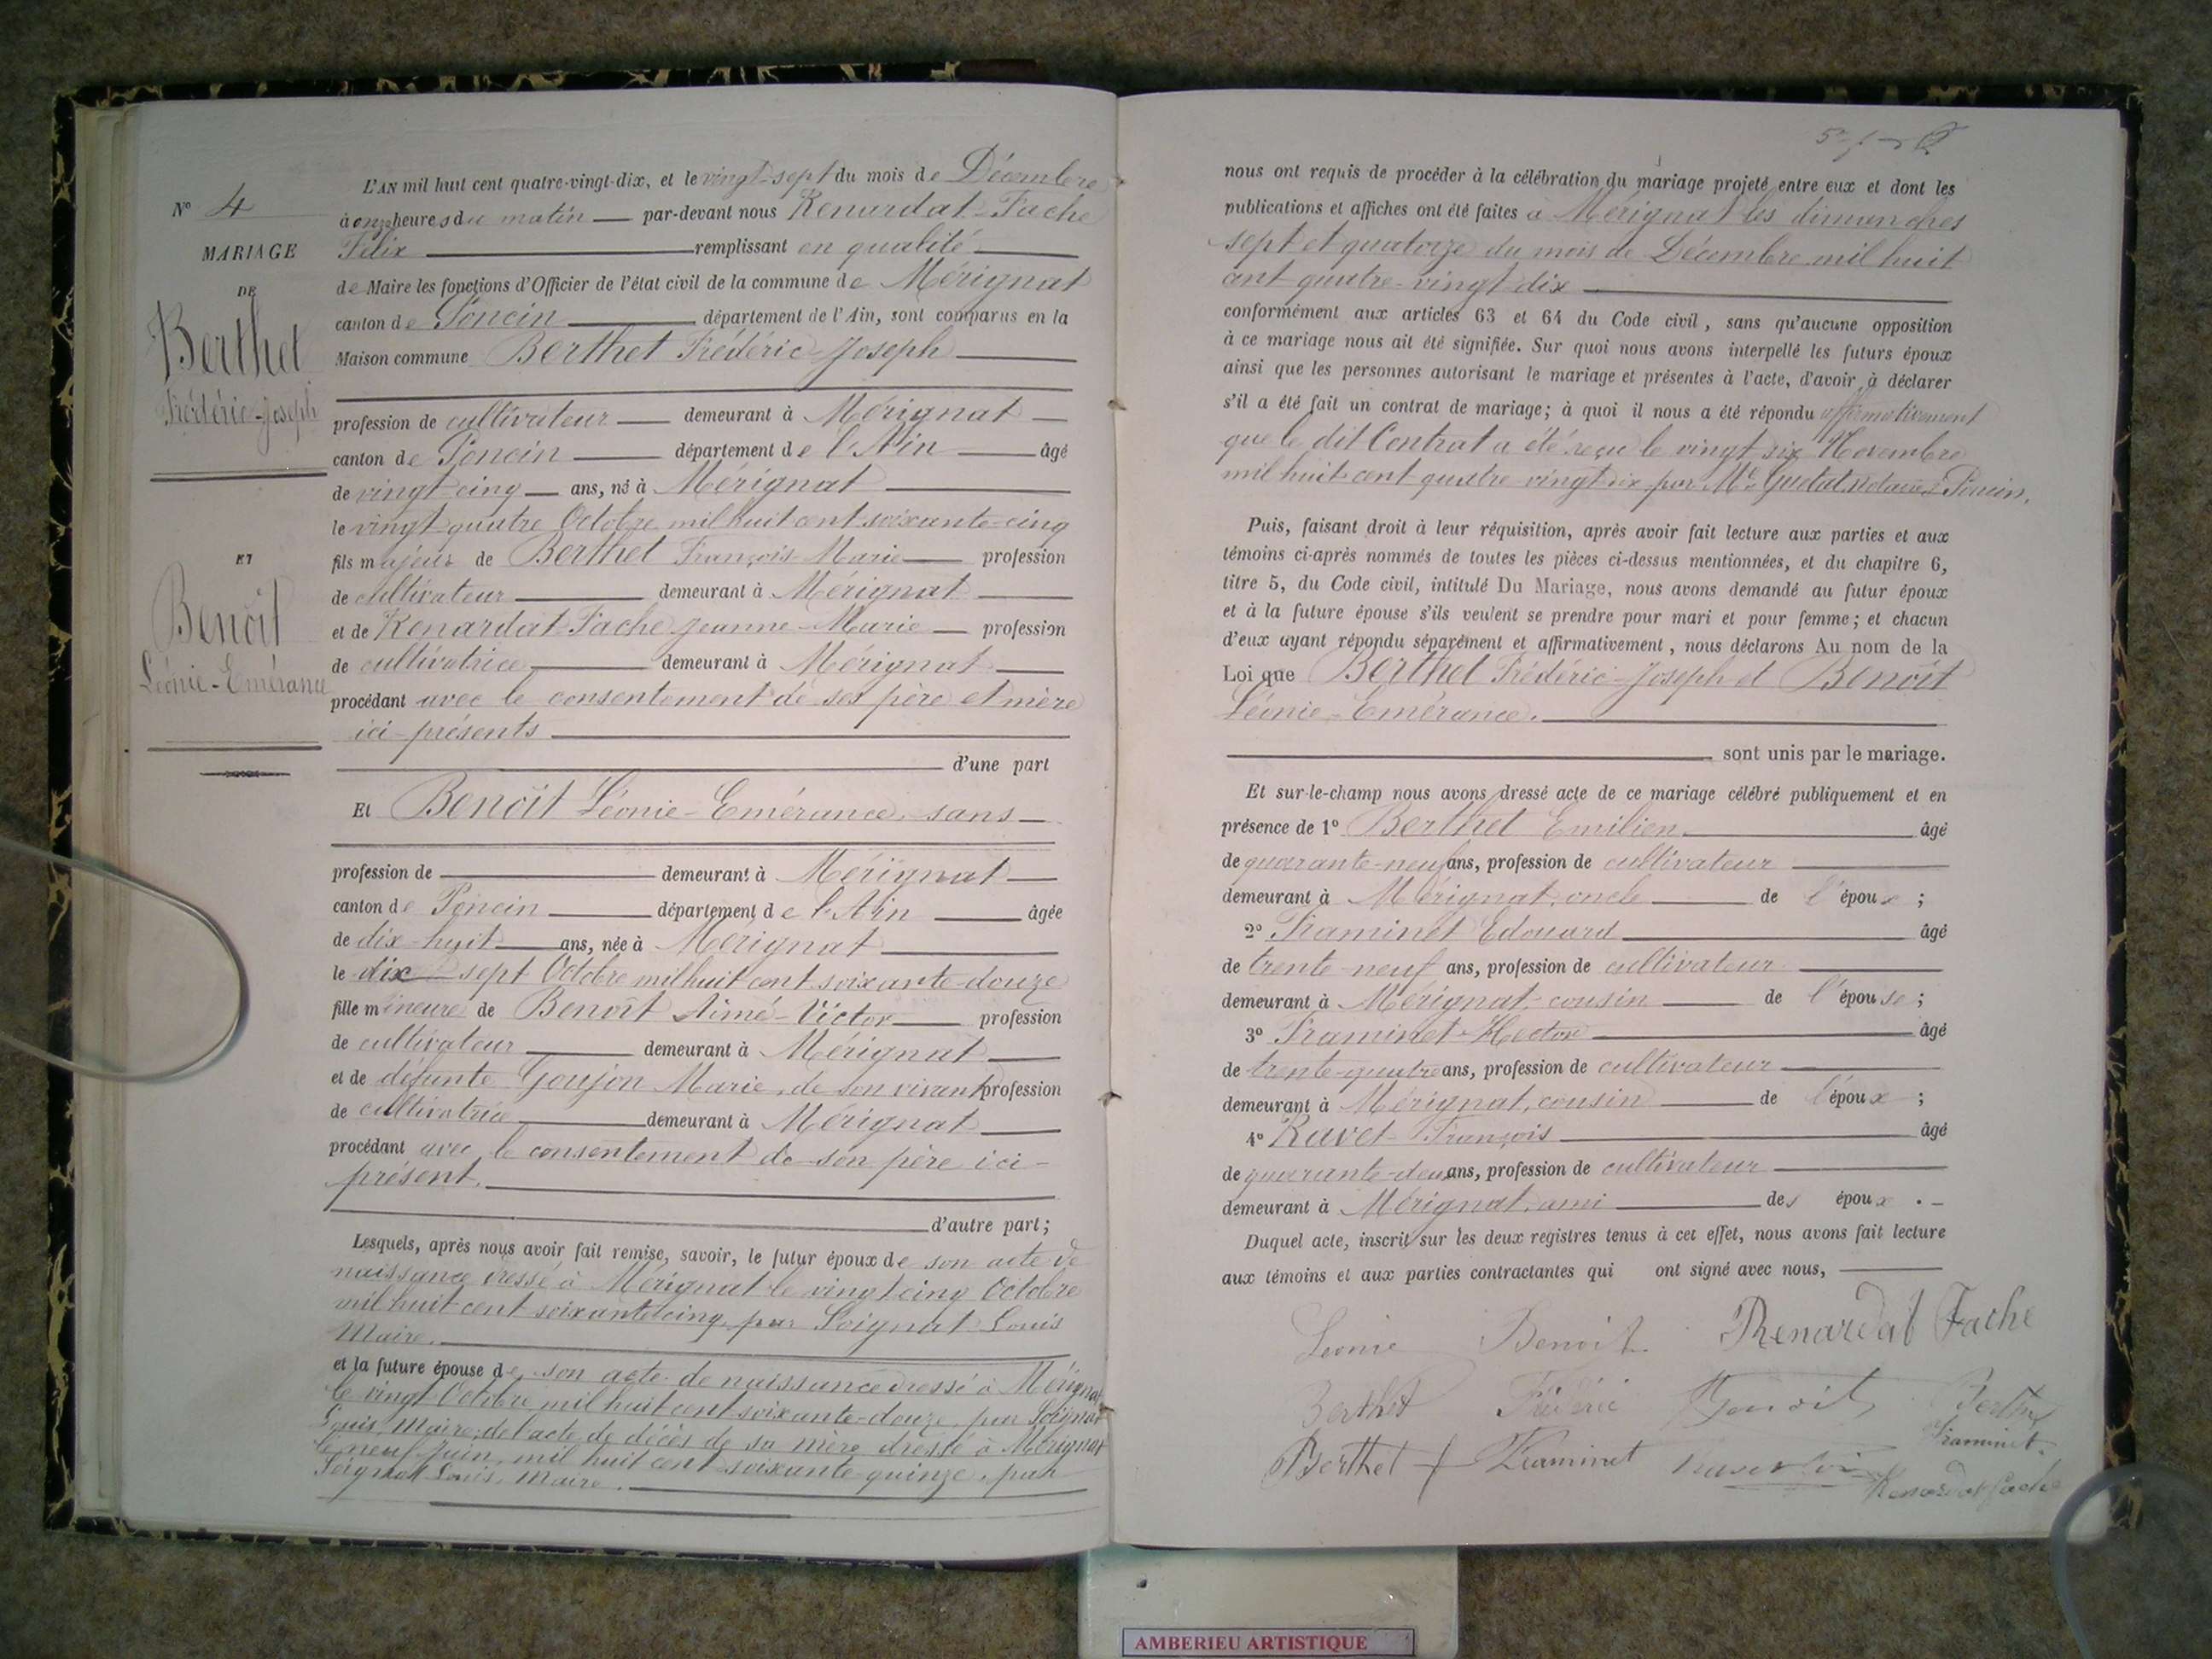 N° 4
MARIAGE
DE
Berthet
Frédéric-Joseph
ET
Benoît
Léonie-Emérance
L'AN mil huit cent quatre-vingt-dix, et le vingt-sept du mois de Décembre
à onze heures du matin par-devant nous Renardat-Fache
Félix remplissant en qualité
de Maire les fonctions d'Officier de l'état civil de la commune de Mérignat
canton de Poncin département de l'Ain, sont comparus en la
Maison commune Berthet Frédéric-Joseph
profession de cultivateur demeurant à Mérignat
canton de Poncin département de l'Ain âgé
de vingt cinq ans, né à Mérignat
le vingt quatre Octobre mil huit cent soixante-cinq
fils majeur de Berthet François-Marie profession
de cultivateur demeurant à Mérignat
et de Renardat-Fache Jeanne-Marie profession
de cultivatrice demeurant à Mérignat
procédant avec le consentement de ses père et mère
ici-présents
d'une part
Et Benoît Léonie-Emérance, sans
profession de demeurant à Mérignat
canton de Poncin département de l'Ain âgée
de dix-huit ans, née à Mérignat
le dix sept Octobre mil huit cent soixante-douze
fille mineure de Benoît Aimé-Victor profession
de cultivateur demeurant à Mérignat
et de défunte Goujon Marie, de son vivant profession
de cultivatrice demeurant à Mérignat
procédant avec le consentement de son père ici-
présent.
d'autre part;
Lesquels, après nous avoir fait remise, savoir, le futur époux de son acte de
naissance dressé à Mérignat le vingt cinq Octobre
mil huit cent soixante cinq, par Soignat Louis
Maire.
et la future épouse de son acte de naissance dressé à Mérignat
le vingt Octobre mil huit cent soixante-douze, par Soignat
Louis, Maire; de l'acte de décès de sa mère dressé à Mérignat
le neuf Juin, mil huit cent soixante quinze, par
Soignat Louis, Maire.
nous ont requis de procéder à la célébration du mariage projeté entre eux et dont les
publications et affiches ont été faites à Mérignat les dimanches
sept et quatorze du mois de Décembre mil huit
cent quatre-vingt dix
conformément aux articles 63 et 64 du Code civil, sans qu'aucune opposition
à ce mariage nous ait été signifiée. Sur quoi nous avons interpellé les futurs époux
ainsi que les personnes autorisant le mariage et présentes à l'acte, d'avoir à déclarer
s'il a été fait un contrat de mariage; à quoi il nous a été répondu affirmativement
que le dit Contrat a été reçu le vingt six Novembre
mil huit cent quatre vingt dix par Me Guetat, notaire à Poncin.
Puis, faisant droit à leur réquisition, après avoir fait lecture aux parties et aux
témoins ci-après nommés de toutes les pièces ci-dessus mentionnées, et du chapitre 6,
titre 5, du Code civil, intitulé Du Mariage, nous avons demandé au futur époux
et à la future épouse s'ils veulent se prendre pour mari et pour femme; et chacun
d'eux ayant répondu séparément et affirmativement, nous déclarons Au nom de la
Loi que Berthet Frédéric-Joseph et Benoît
Léonie-Emérance.
sont unis par le mariage.
Et sur-le-champ nous avons dressé acte de ce mariage célébré publiquement et en
présence de 1° Berthet Emilien âgé
de quarante-neuf ans, profession de cultivateur
demeurant à Mérignat, oncle de l'époux ;
2° Framinet Edouard âgé
de trente-neuf ans, profession de cultivateur
demeurant à Mérignat, cousin de l'épouse ;
3° Framinet-Hector âgé
de trente-quatre ans, profession de cultivateur
demeurant à Mérignat, cousin de l'époux ;
4° Ravet-François âgé
de quarante-deux ans, profession de cultivateur
demeurant à Mérignat, ami des époux .
Duquel acte, inscrit sur les deux registres tenus à cet effet, nous avons fait lecture
aux témoins et aux parties contractantes qui ont signé avec nous,
Leonie Benoit Renardat Fache
Berthet Frédéric Benoit Berthet
Framinet
Berthet Framinet
Renardat Fache
AMBERIEU ARTISTIQUE